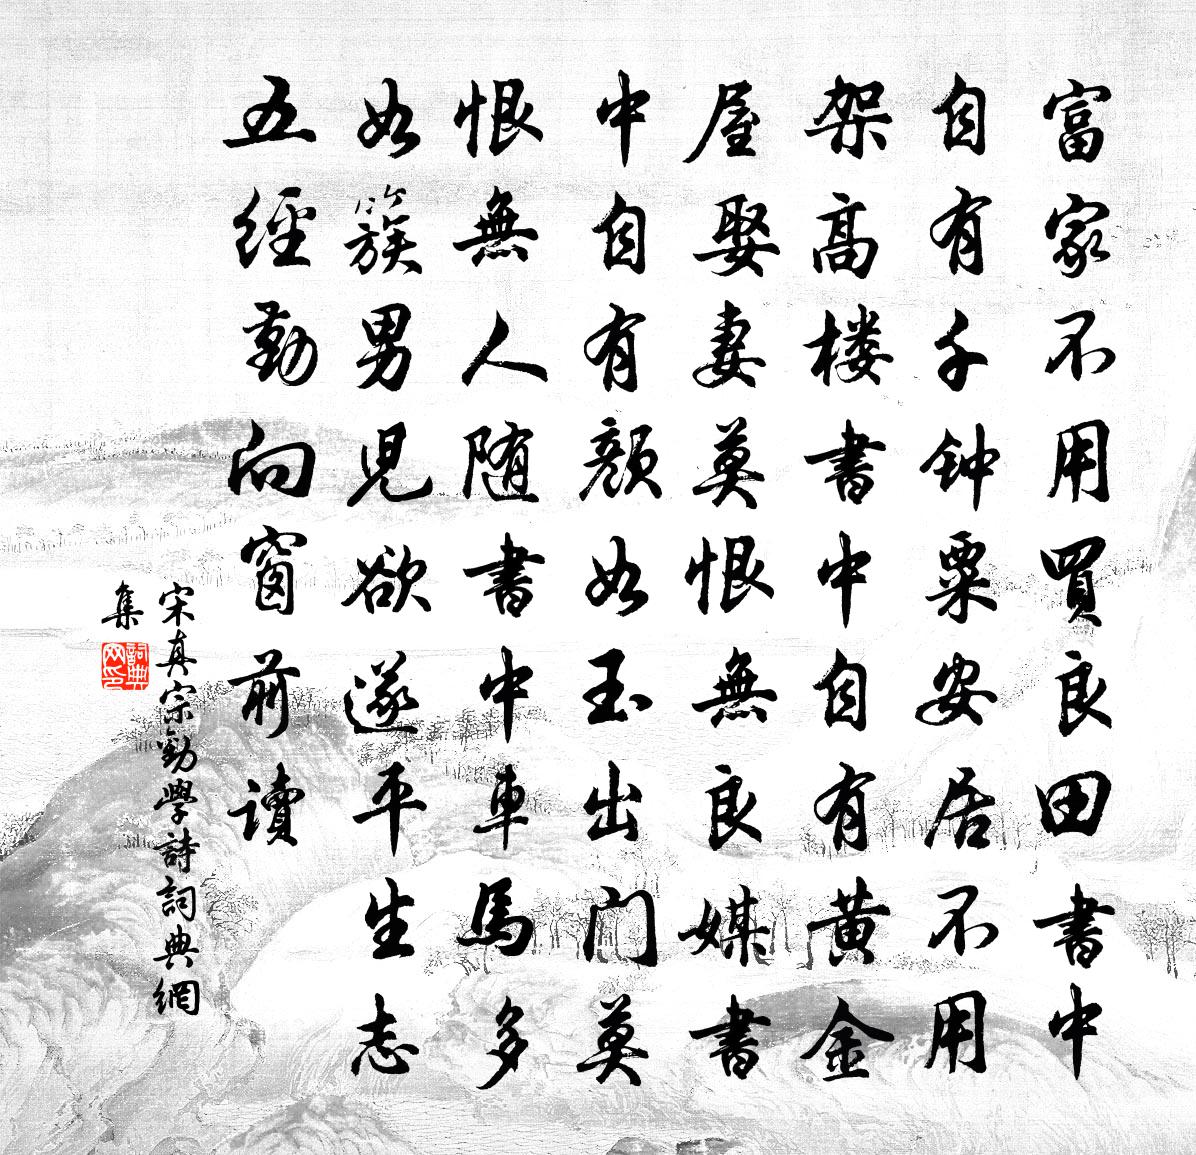 富家不用買良田書中
自有千钟粟安居不用
架高楼書中自有黄金
屋娶妻莫恨無良媒書
中自有颜如玉出门莫
恨無人随書中車馬多
如簇男兒欲遂平生志
五經勤向窗前讀
宋真宗勸學詩詞典網
集
詞典
网印